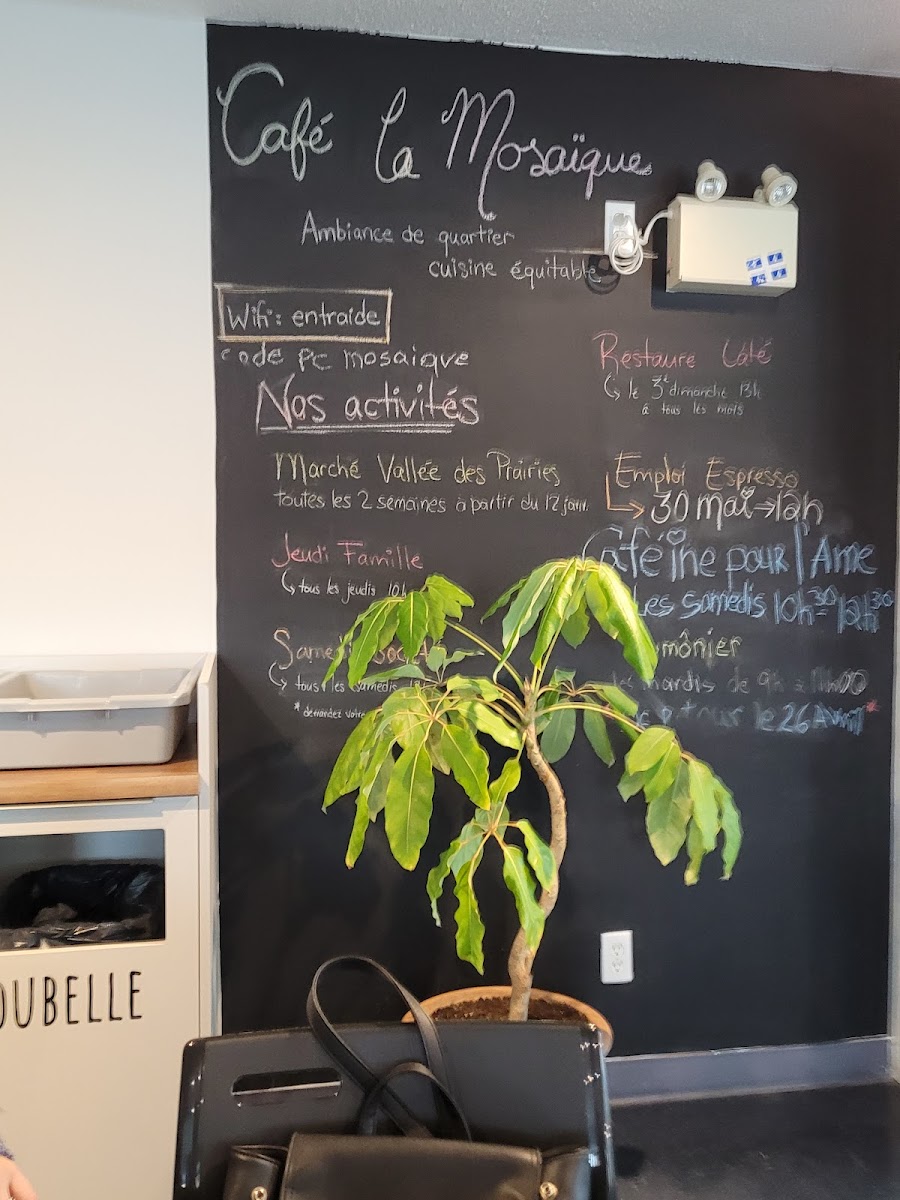 Café La Mosaïque
Ambiance de quartier
cuisine équitable
Wifi: entraide
code pc mosaique
Nos activités
Marché Vallée des Prairies
toutes les 2 semaines à partir du 12 janv.
Jeudi Famille
tous les jeudis 10h
Samedi
tous les samedis
* demandez votre
Restaure Café
le 3e dimanche 13h
à tous les mois
Emploi Espresso
30 mai → 12h
Caféine pour l'Ame
Les samedis 10h30 - 12h30
mardis de 9h à 11h00
le 26 Avril*
OUBELLE